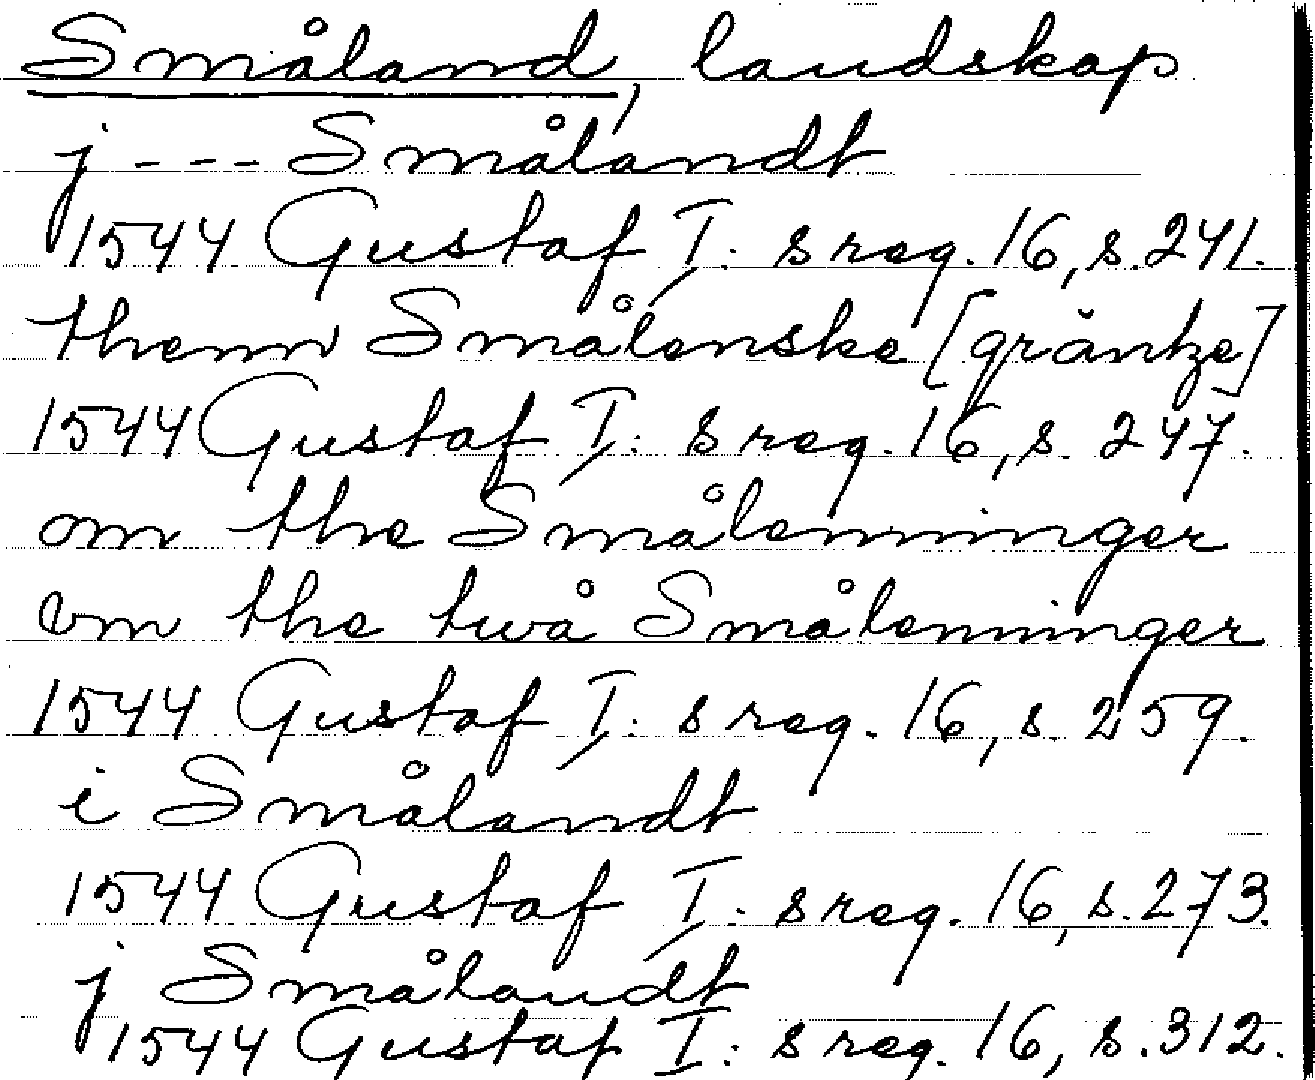 Småland, landskap
j - - - Smålandt
1544 Gustaf I: s reg. 16, s. 241.
thenn Smålenske [gräntze]
1544 Gustaf I: s reg. 16, s. 247.
om the Smålenninger
vm the twå Smålenninger
1544 Gustaf I: s reg. 16, s. 259.
i Smålandt
1544 Gustaf I: s reg. 16, s. 273.
j Smålandt
1544 Gustaf I: s reg. 16, s. 312.